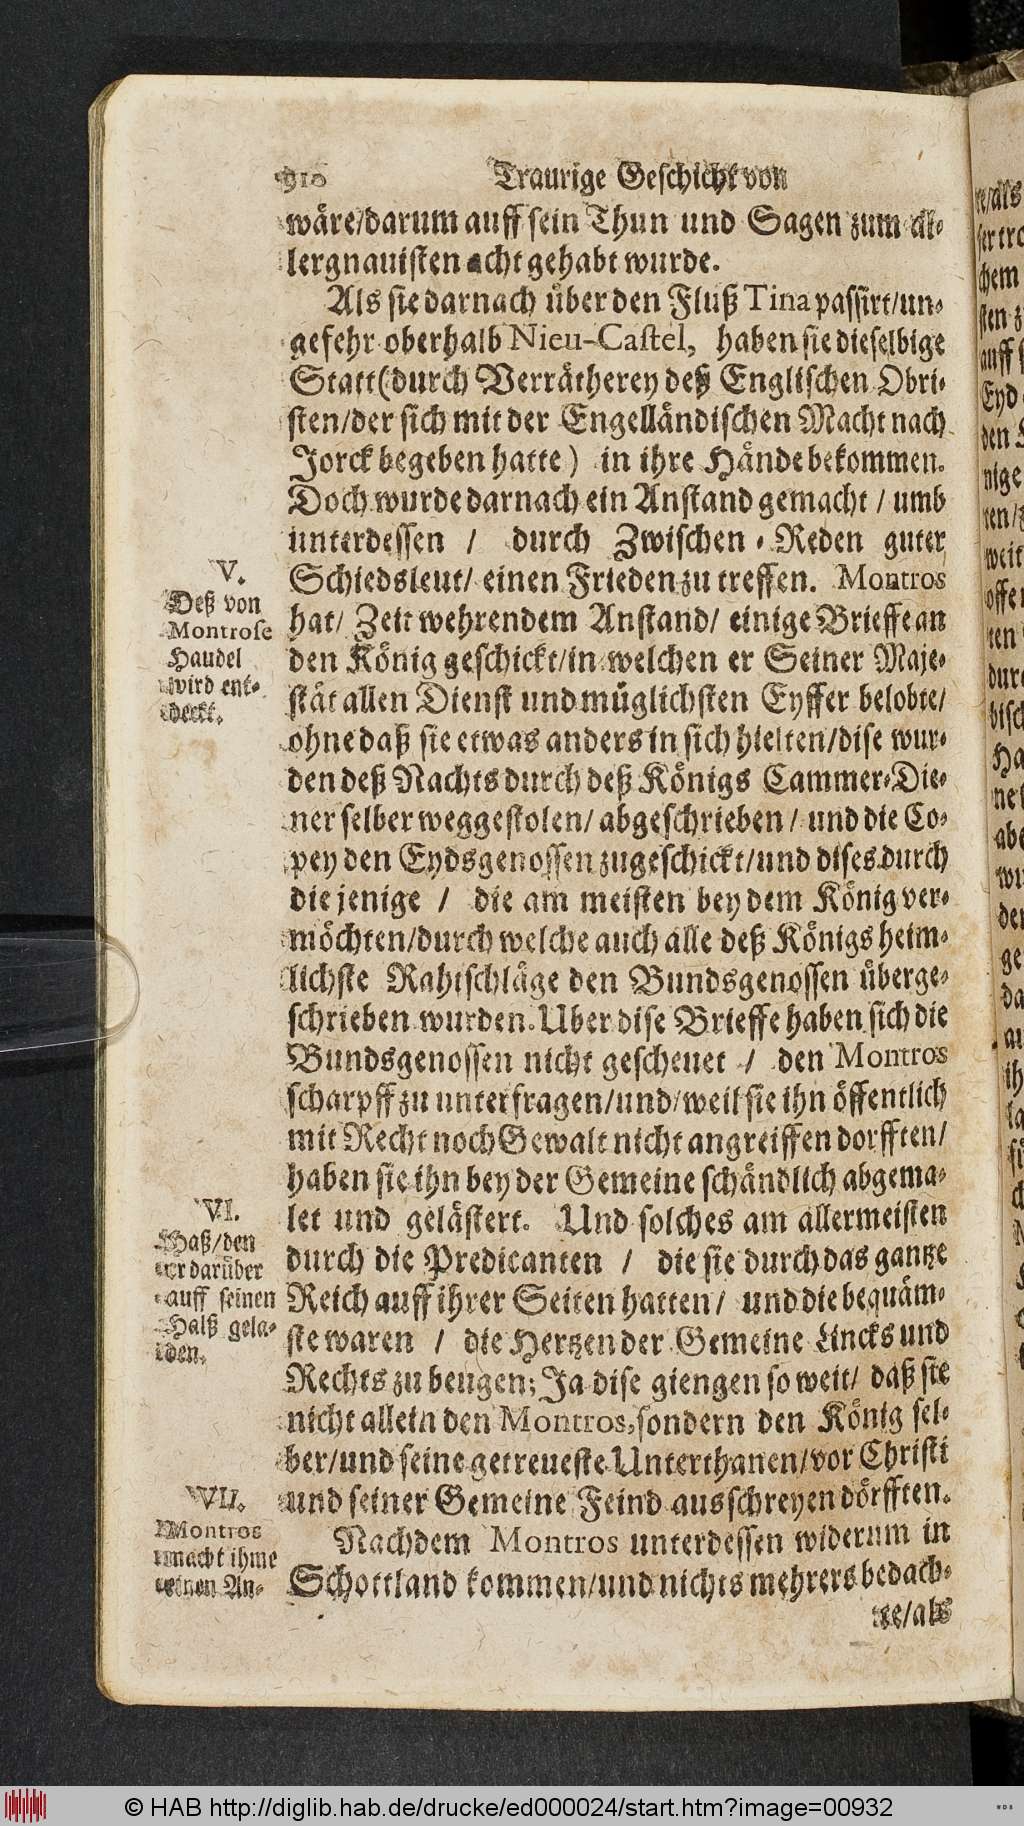 910 Traurige Geschicht von
wäre/darum auff sein Thun und Sagen zum al-
lergnauisten acht gehabt wurde.
Als sie darnach über den Fluß Tina passirt/un-
gefehr oberhalb Nieu-Castel, haben sie dieselbige
Statt (durch Verrätherey deß Englischen Obri-
sten/der sich mit der Engelländischen Macht nach
Jorck begeben hatte) in ihre Hände bekommen.
Doch wurde darnach ein Anstand gemacht / umb
unterdessen / durch Zwischen-Reden guter
Schiedsleut/ einen Frieden zu treffen. Montros
hat/ Zeit wehrendem Anstand/ einige Brieffe an
den König geschickt/in welchen er Seiner Maje-
stät allen Dienst und müglichsten Eyffer belobte/
ohne daß sie etwas anders in sich hielten/dise wur-
den deß Nachts durch deß Königs Cammer-Die-
ner selber weggestolen/ abgeschrieben / und die Co-
pey den Eydsgenossen zugeschickt/und dises durch
die jenige / die am meisten bey dem König ver-
möchten/durch welche auch alle deß Königs heim-
lichste Rahtschläge den Bundsgenossen überge-
schrieben wurden. Uber dise Brieffe haben sich die
Bundsgenossen nicht gescheuet / den Montros
scharpff zu unterfragen/und/weil sie ihn öffentlich
mit Recht noch Gewalt nicht angreiffen dorfften/
haben sie ihn bey der Gemeine schändlich abgema-
let und gelästert. Und solches am allermeisten
durch die Predicanten / die sie durch das gantze
Reich auff ihrer Seiten hatten/ und die bequäm-
ste waren / die Hertzen der Gemeine Lincks und
Rechts zu beugen; Ja dise giengen so weit/ daß sie
nicht allein den Montros, sondern den König sel-
ber/und seine getreueste Unterthanen/vor Christi
und seiner Gemeine Feind ausschreyen dörfften.
Nachdem Montros unterdessen widerum in
Schottland kommen/und nichts mehrers bedach-
te/als
V.
Deß von
Montrose
Handel
wird ent-
deckt.
VI.
Haß/den
er darüber
auff seinen
Halß gela-
den.
VII.
Montros
macht ihme
einen An-
© HAB http://diglib.hab.de/drucke/ed000024/start.htm?image=00932